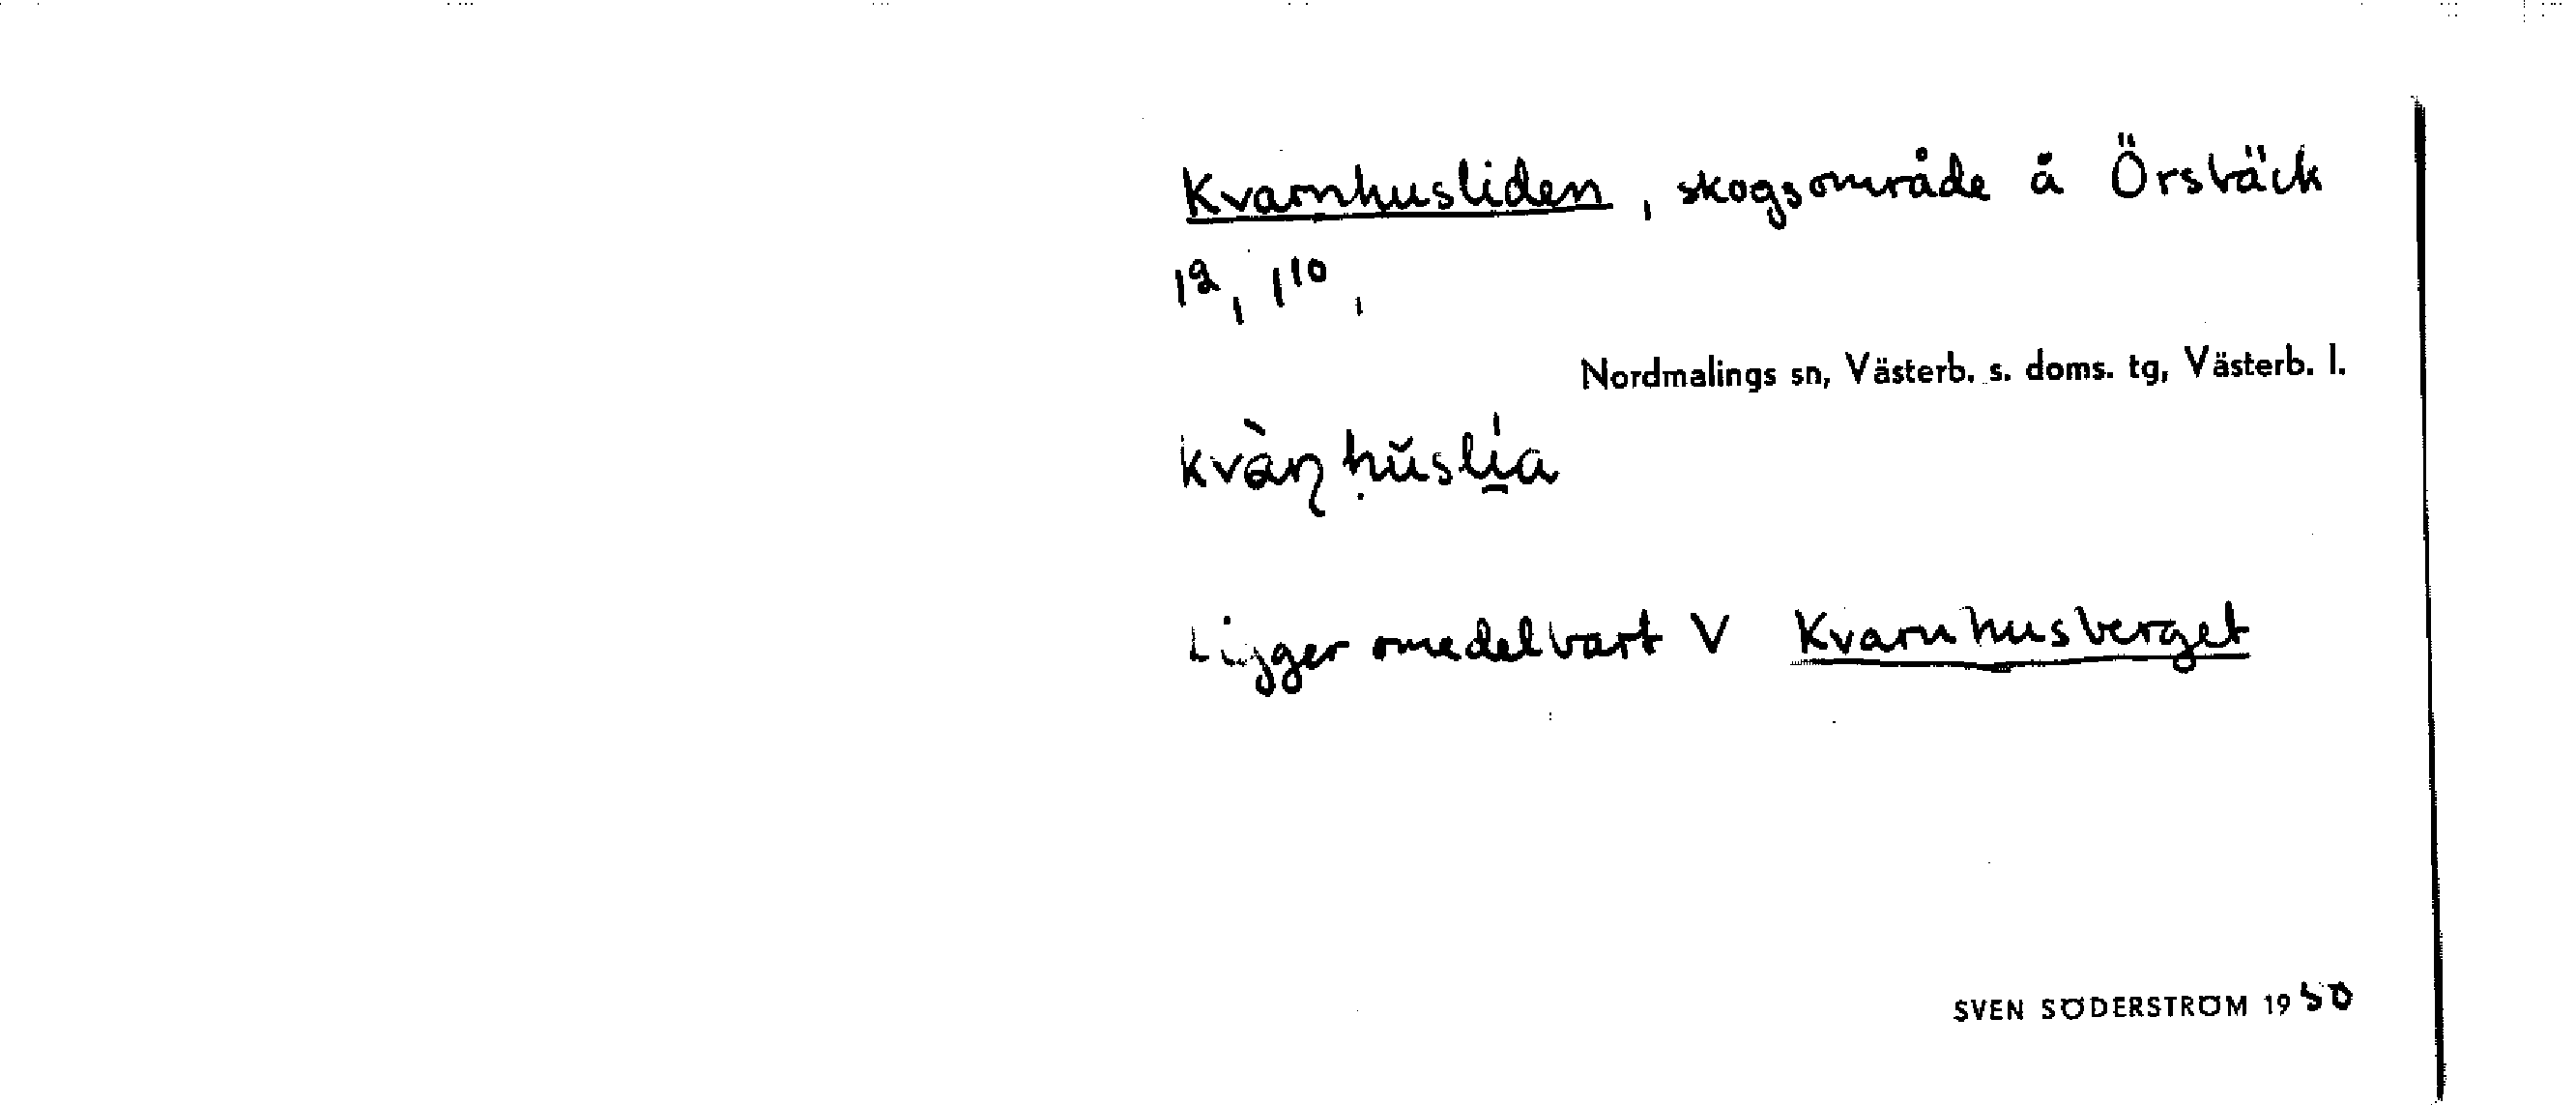 Kvarnhusliden, skogsområde å Örsbäck
1², 1¹⁰,
Nordmalings sn, Västerb. s. doms. tg, Västerb. l.
kvàɳhŭslí̱a
Ligger omedelbart V Kvarnhusberget
SVEN SÖDERSTRÖM 1950